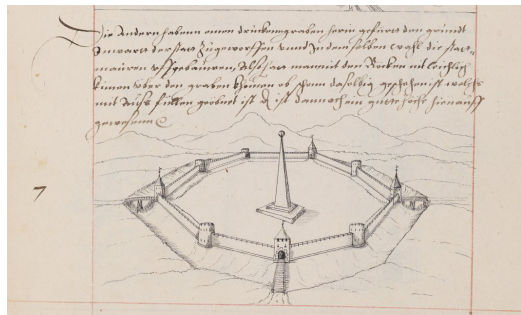 Die andern habenn einen drückenen graben herin gefuert den grundt
Inwarts der statt zugeworffen unnd In demselben wahl die statt=
mauren uffgebauwen, also das man mit den Böcken nit leichlich
kinen über den graben khomen ob schonn daselbig geschehen ist welchs
mit auß füllen geobnet ist ist dannochein gutte hoche hienauff
gewesenn
7